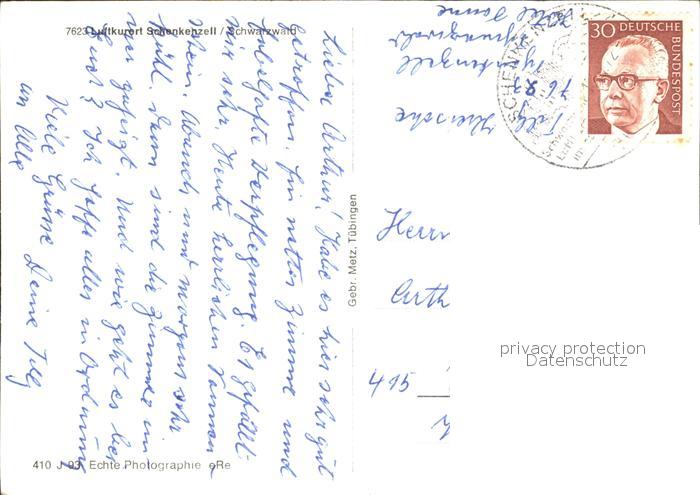 7623 Luftkurort Schenkenzell / Schwarzwald
Lieber Arthur! Habe es hier sehr gut
getroffen. Ein nettes Zimmer und
fabelhafte Verpflegung. Es gefällt
mir sehr. Heute herrlichen Sonnen-
schein. Abends und morgens sehr
kühl. Dann sind die Zimmer im-
mer geheizt. Und wie geht es bei
Euch? Ich hoffe alles in Ordnung
Viele Grüsse Deine Tilly
an Alle
410 J 93 Echte Photographie eRe
Gebr. Metz, Tübingen
Tilly
76
30 DEUTSCHE
BUNDESPOST
SCHENKENZELL
Herrn
Arth
415
privacy protection
Datenschutz